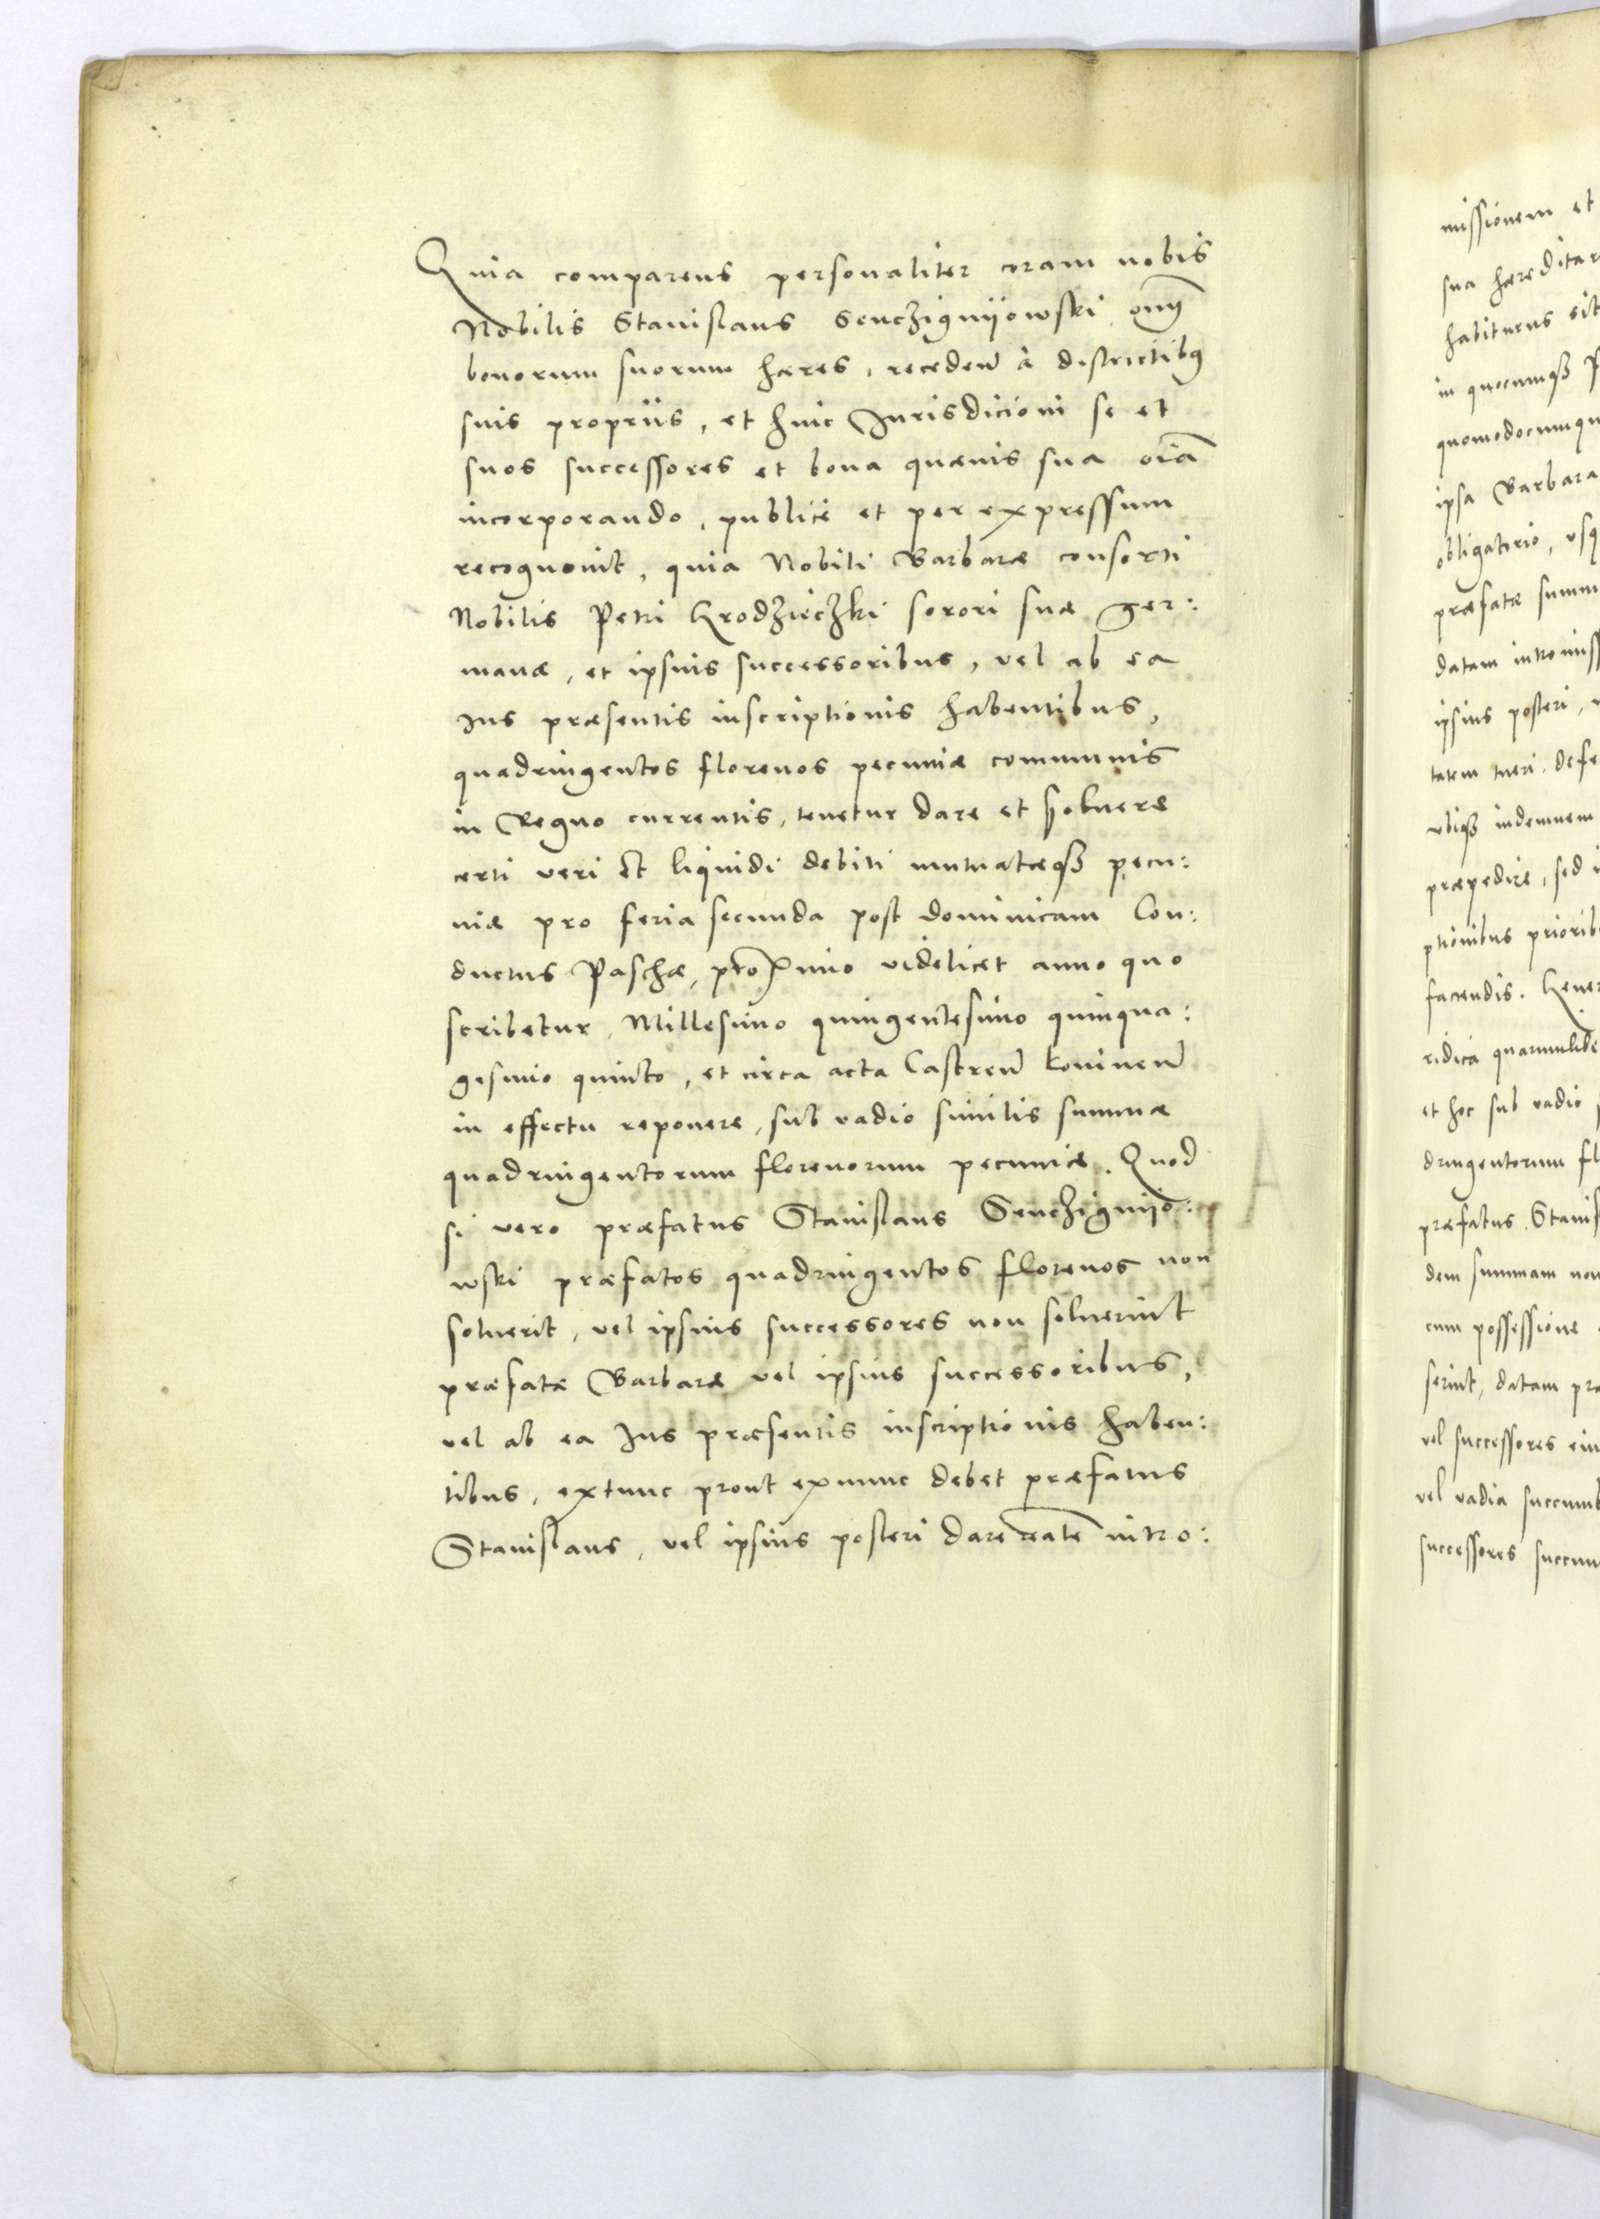 Quia comparens personaliter coram nobis
Nobilis Stanislaus Senczignijowski om̅
bonorum suorum hæres, receden̅ à districtibꝯ
suis propriis, et huic Jurisdicioni se et
suos successores et bona quævis sua oi̅a
incorporando, publicè et per expressum
recognouit, quia Nobili Barbaræ consorti
Nobilis Petri Grodzieczki sorori suæ ger:
manæ, et ipsius successoribus, vel ab ea
ius præsentis inscriptionis habentibus,
quadringentos florenos pecuniæ communis
in Regno currentis, tenetur dare et soluere
certi veri et liquidi debiti mutuatæqꝫ pecu:
niæ pro feria secunda post dominicam Con:
ductus Paschæ, proximo videlicet anno quo
scribetur Millesimo quingentesimo quinqua:
gesimo quinto, et circa acta Castren̅ Koninen̅
in effectu reponere, sub vadio similis summæ
quadringentorum florenorum pecuniæ. Quod
si vero præfatus Stanislaus Senczignijo:
wski præfatos quadringentos florenos non
soluerit, vel ipsius successores non soluerint
præfatæ Barbaræ vel ipsius successoribus,
vel ab ea Jus præsentis inscriptionis haben:
tibus, extunc prout exnunc debet præfatus
Stanislaus, vel ipsius posteri dare realē intro:
missionem et
sua hæreditar
habiturus sit
in quocumqꝫ
quomodocumqu
ipsa Barbara
obligatorio, usq
præfatæ summ
datam intromiss
ipsius posteri,
tatem tueri, defe
ubiqꝫ indemnem
præpedire, sed i
ptionibus priorib
faciendis. Gener
ridica quarumlibe
et hoc sub vadio
dringentorum fl
præfatus Stanis
dem summam non
cum possessione
serint, datam pra
vel successores eiu
vel vadia succumb
successores succum